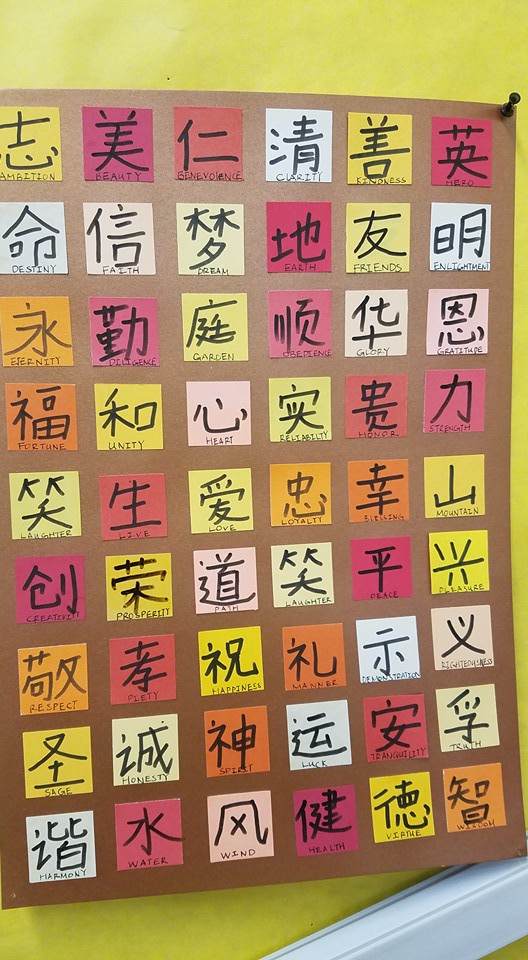 志 美 仁 清 善 英
AMBITION BEAUTY BENEVOLENCE CLARITY KINDNESS HERO
命 信 梦 地 友 明
DESTINY FAITH DREAM EARTH FRIENDS ENLIGHTMENT
永 勤 庭 顺 华 恩
ETERNITY DILIGENCE GARDEN OBEDIENCE GLORY GRATITUDE
福 和 心 实 贵 力
FORTUNE UNITY HEART RELIABILTY HONOR STRENGTH
笑 生 爱 忠 幸 山
LAUGHTER LIVE LOVE LOYALTY MOUNTAIN
创 荣 道 笑 平 兴
CREATIVITY PROSPERITY PATH LAUGHTER PEACE PLEASURE
敬 孝 祝 礼 示 义
RESPECT PIETY HAPPINESS MANNER DEMONSTRATION RIGHTEOUSNESS
圣 诚 神 运 安 孚
SAGE HONESTY SPIRIT LUCK TRANQUILITY TRUTH
谐 水 风 健 德 智
HARMONY WATER WIND HEALTH VIRTUE WISDOM